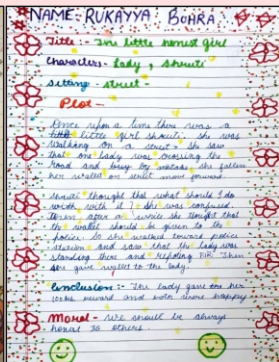 NAME:- RUKAYYA BOHRA.
Title :- The little honest girl
Characters:- Lady, Shruiti
Sitting:- Street -
Plot -
Once upon a time there was a
little girl shruiti. she was
walking on a street. she saw
that one lady was crossing the
road and by mistake she
her wallet on street and
shruiti thought that what should I do
with it? she was confused.
Then after a while she thought that
the wallet should be given to the
police. so she walked toward police
station and saw that the lady was
standing there and Then
she gave wallet to the lady.
Conclusion:- The lady gave to her
reward and both were happy
Moral - We should be always
honest to others.